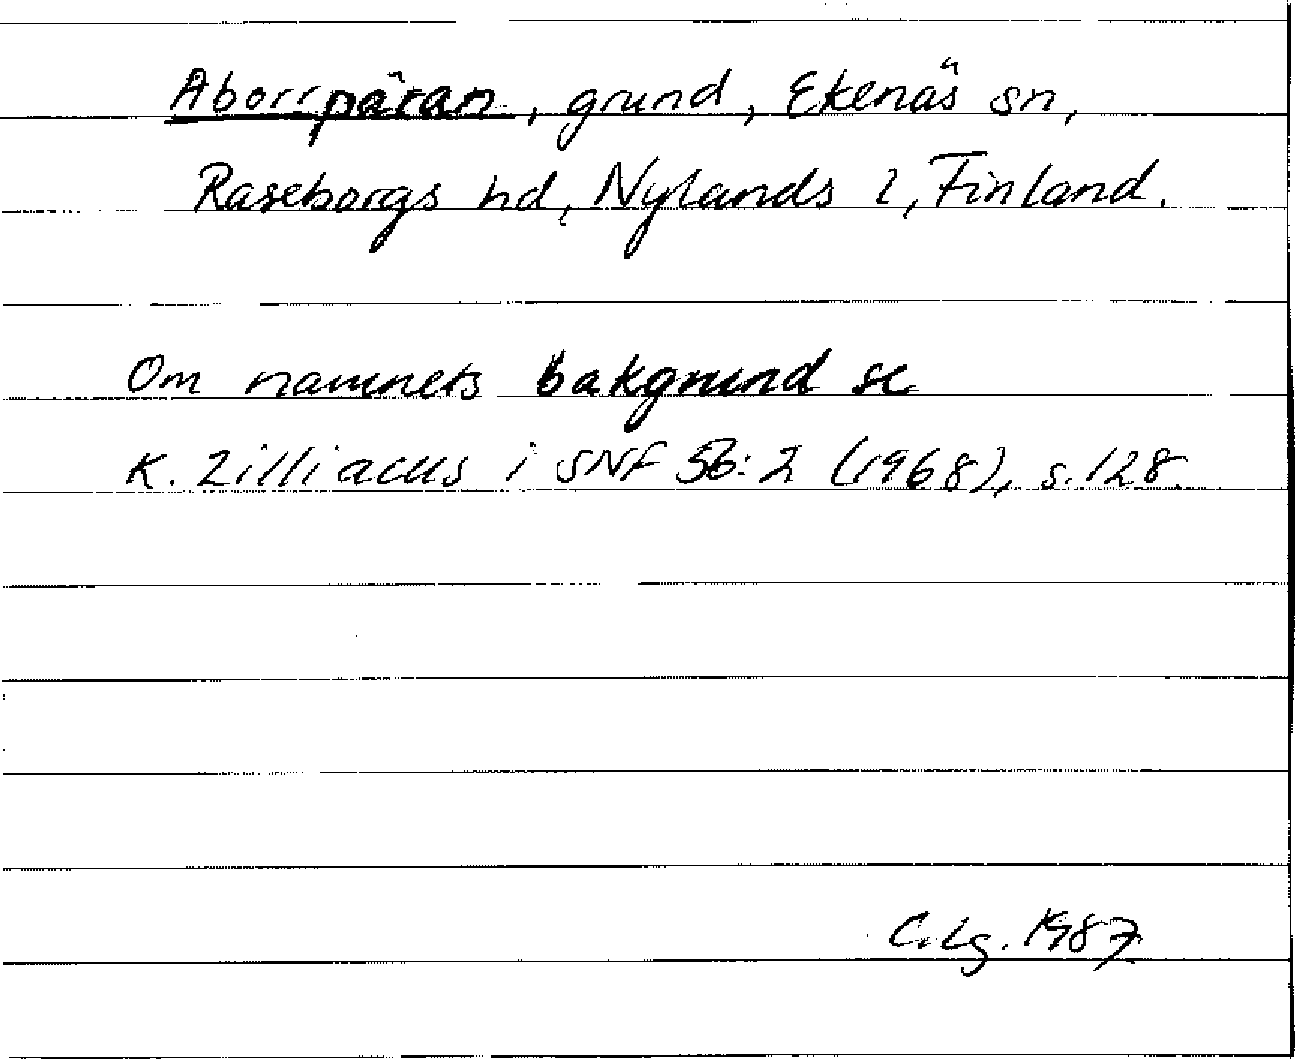 Aborrpäran, grund, Ekenäs sn,
Raseborgs hd, Nylands l, Finland.
Om namnets bakgrund se
K. Zilliacus i SNF 56:2 (1968), s. 128.
C. Lg. 1987